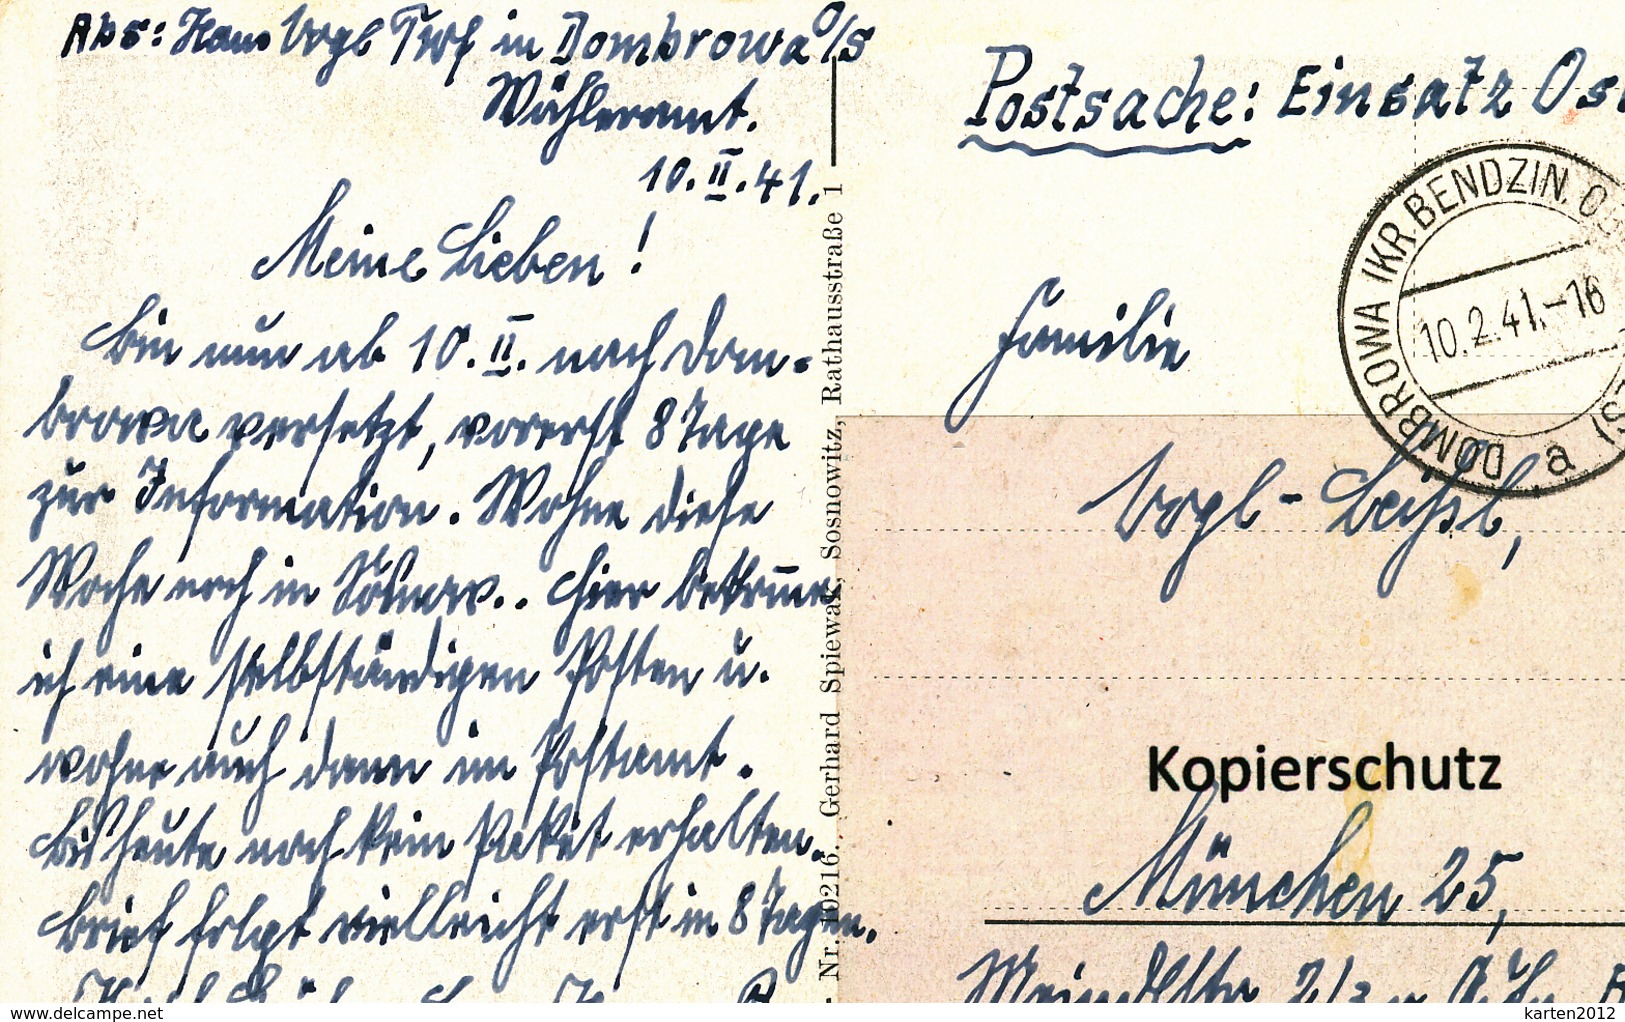 Abs: Hans Vogl Twf in Dombrowa O/S
Wähleramt.
10.II.41.
Meine Lieben!
Bin nun ab 10.II. nach Dom-
browa versetzt, vorerst 8 Tage
zur Information. Wohne diese
Woche noch in . . Hier bekomme
ich eine selbständigen Posten u.
wohne auch dann im Postamt.
Bis heute noch kein Paket erhalten.
Brief folgt vielleicht erst in 8 Tagen.
Nr. 10216. Gerhard Spiewak, Sosnowitz, Rathausstraße 1
Postsache: Einsatz Ost
DOMBROWA (KR. BENDZIN. O
10.2.41.-16
a
Familie
Vogl-Beißl,
Kopierschutz
München 25,
Meindlstr
delcampe.net
karten2012